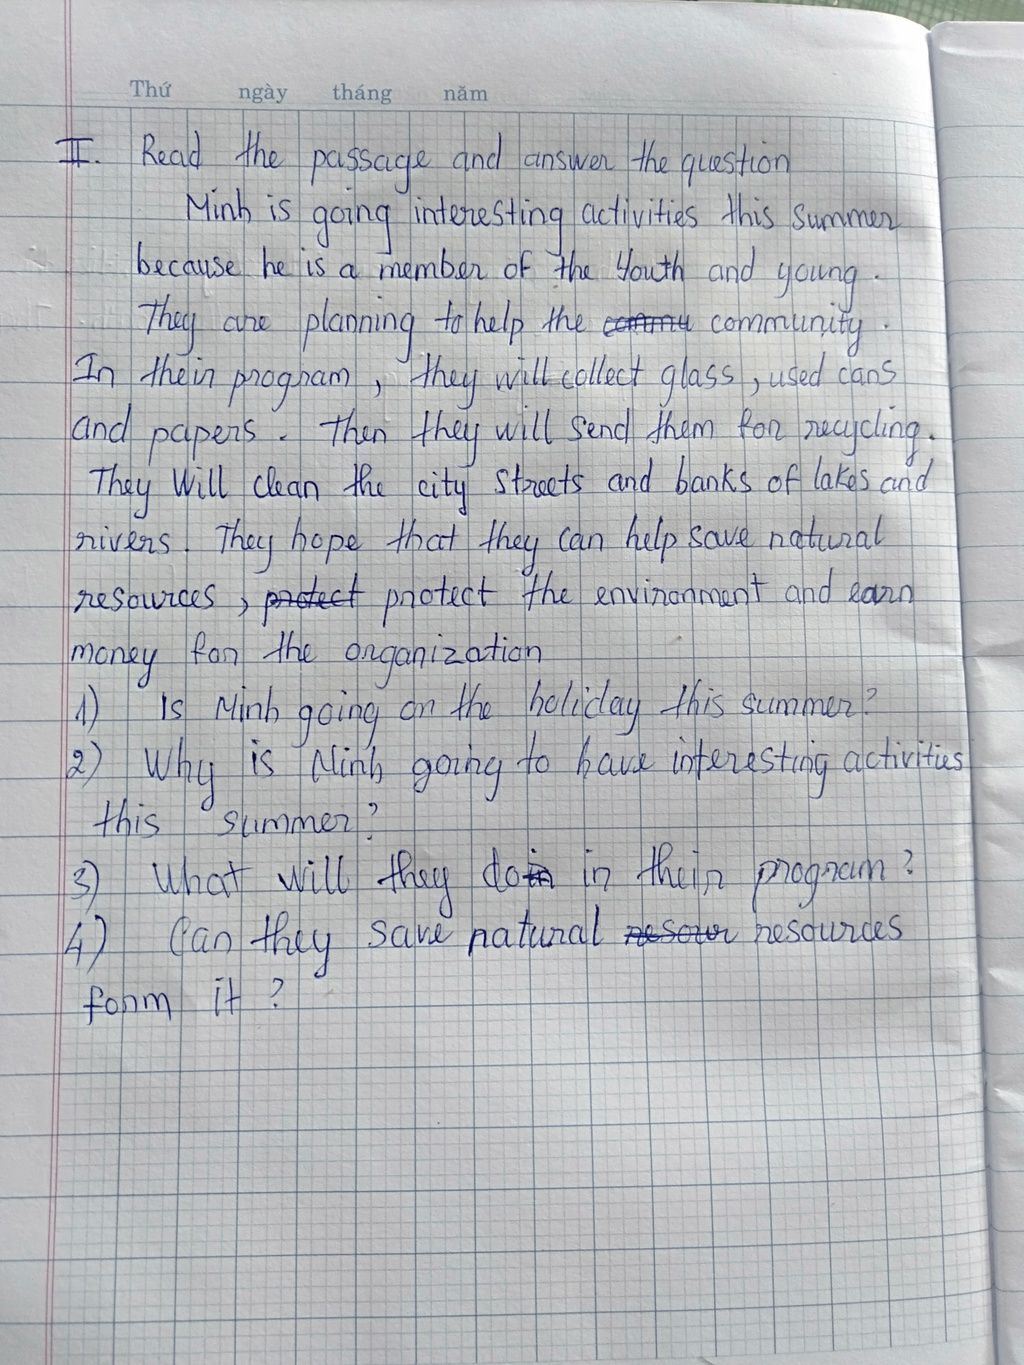 Thứ ngày tháng năm
II. Read the passage and answer the question
Minh is going interesting activities this summer
because he is a member of the Youth and young.
They are planning to help the commu community.
In their program, they will collect glass, used cans
and papers. Then they will send them for recycling.
They Will clean the city streets and banks of lakes and
rivers. They hope that they can help save natural
resources, protect protect the environment and earn
money for the organization
1) Is Minh going on the holiday this summer?
2) Why is Ninh going to have interesting activities
this summer?
3) What will they do in in their program?
4) Can they save natural resour resources
form it?